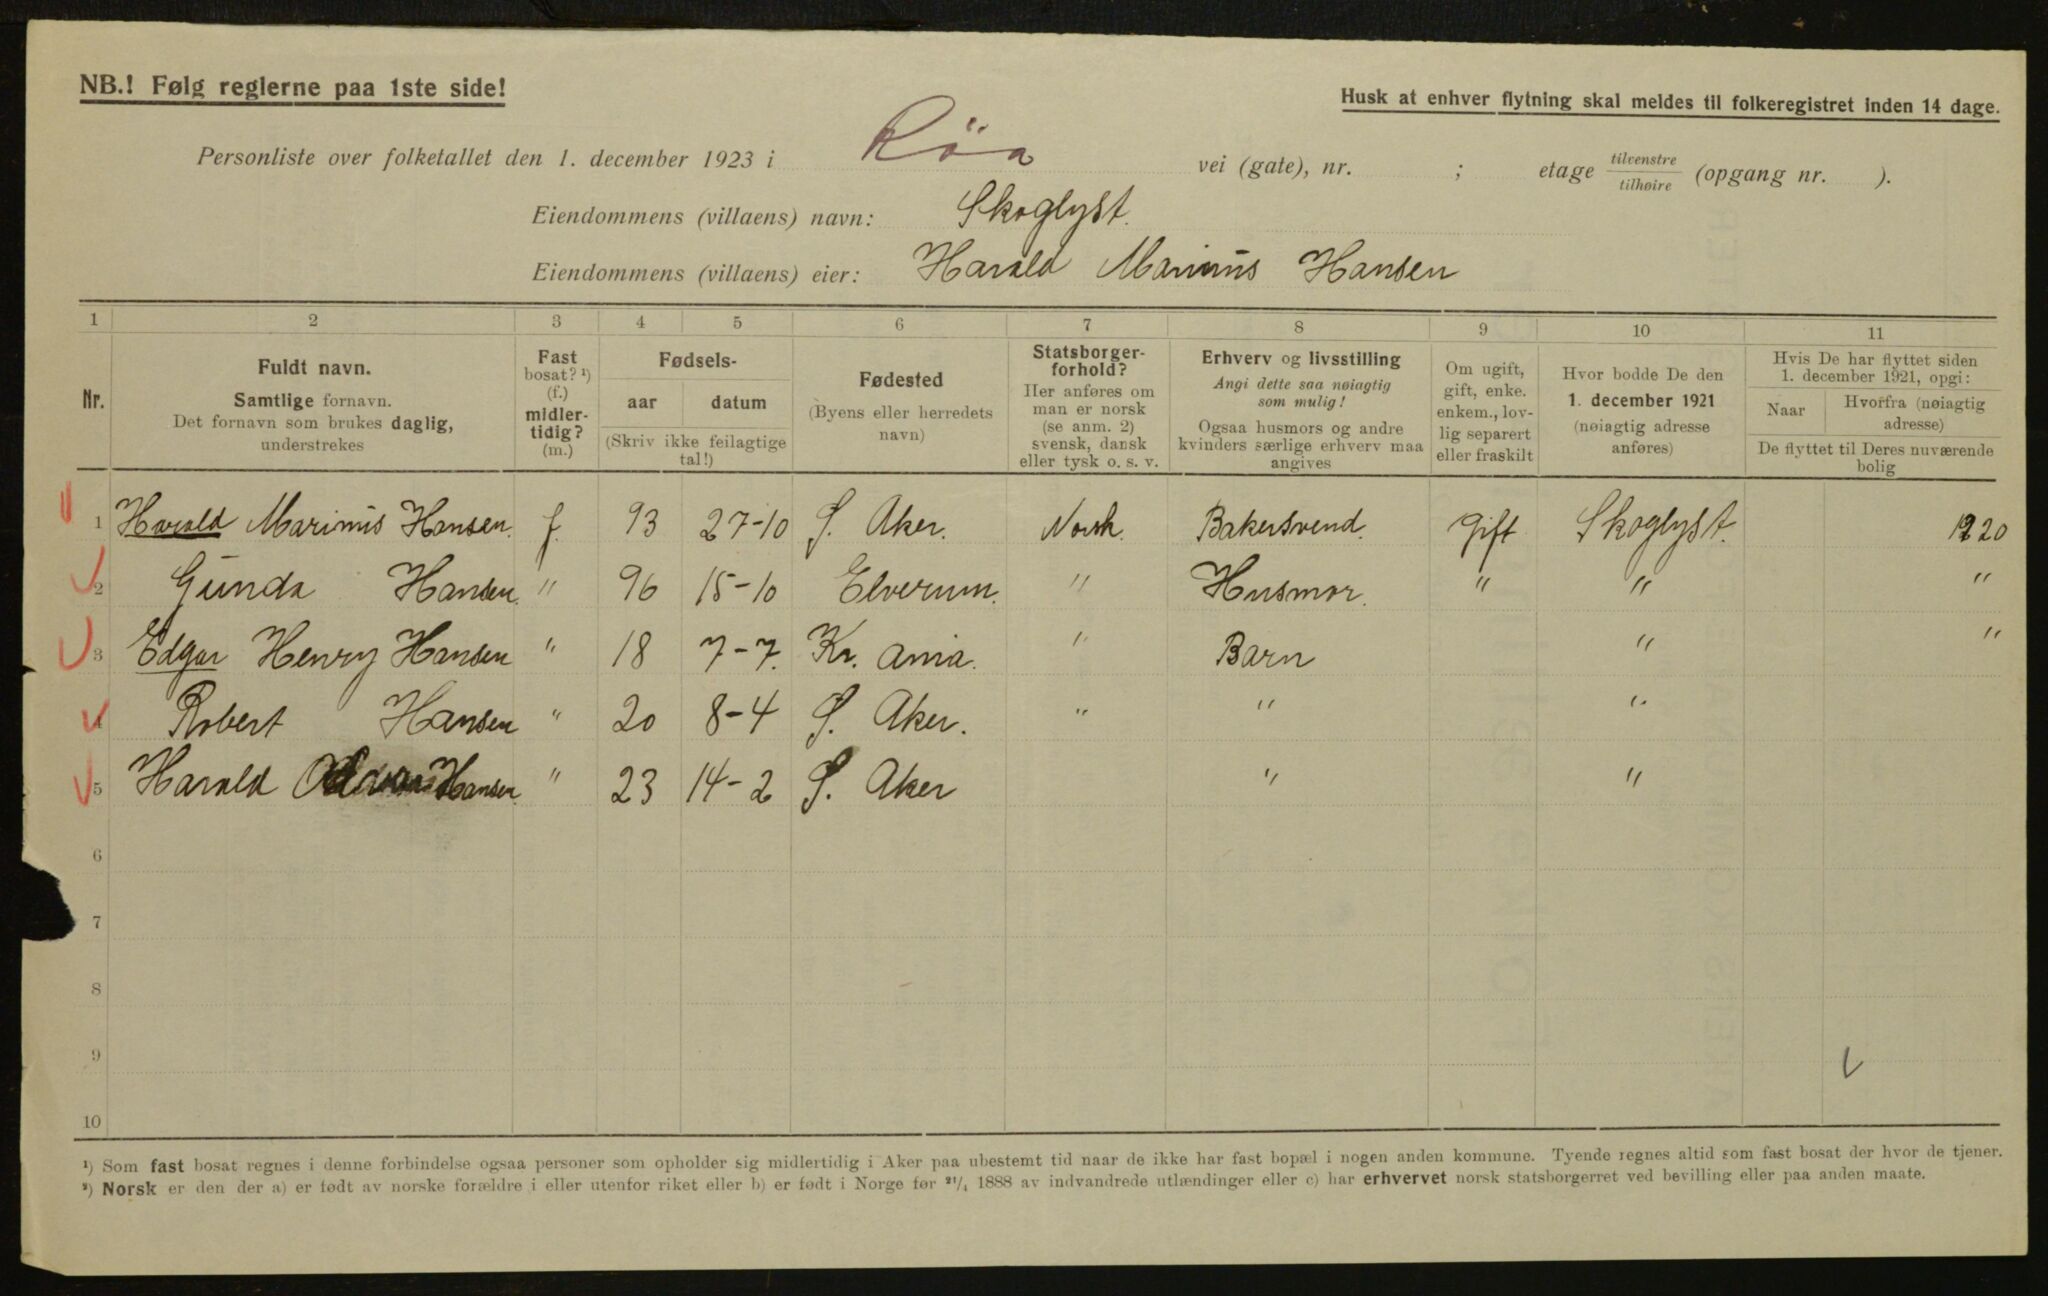 NB.! Følg reglerne paa 1ste side!
Husk at enhver flytning skal meldes til folkeregistret inden 14 dage.
Personliste over folketallet den 1. december 1923 i Röa vei (gate), nr. ; etage tilvenstre / tilhøire (opgang nr. ).
Eiendommens (villaens) navn: Skoglyst.
Eiendommens (villaens) eier: Harald Marinius Hansen
1 2 3 4 5 6 7 8 9 10 11
Nr.
Fuldt navn.
Samtlige fornavn.
Det fornavn som brukes daglig,
understrekes
Fast
bosat? ¹)
(f.)
midler-
tidig?
(m.)
Fødsels-
aar datum
(Skriv ikke feilagtige
tal!)
Fødested
(Byens eller herredets
navn)
Statsborger-
forhold?
Her anføres om
man er norsk
(se anm. 2)
svensk, dansk
eller tysk o. s. v.
Erhverv og livsstilling
Angi dette saa nøiagtig
som mulig!
Ogsaa husmors og andre
kvinders særlige erhverv maa
angives
Om ugift,
gift, enke.
enkem., lov-
lig separert
eller fraskilt
Hvor bodde De den
1. december 1921
(nøiagtig adresse
anføres)
Hvis De har flyttet siden
1. december 1921, opgi:
Naar
Hvorfra (nøiagtig
adresse)
De flyttet til Deres nuværende
bolig
1 Harald Marinus Hansen. f. 93 27-10 Ø. Aker. Norsk. Bakersvend. Gift Skoglyst. 1920
2 Gunda Hansen. " 96 15-10 Elverum. " Husmor. " " "
3 Edgar Henry Hansen " 18 7-7. Kr. ania. " Barn " "
4 Robert Hansen " 20 8-4 Ø. Aker. " " "
5 Harald Hansen. " 23 14-2 Ø. Aker " "
6
7
8
9
10
¹) Som fast bosat regnes i denne forbindelse ogsaa personer som opholder sig midlertidig i Aker paa ubestemt tid naar de ikke har fast bopæl i nogen anden kommune. Tyende regnes altid som fast bosat der hvor de tjener.
²) Norsk er den der a) er født av norske forældre i eller utenfor riket eller b) er født i Norge før ²¹/₄ 1888 av indvandrede utlændinger eller c) har erhvervet norsk statsborgerret ved bevilling eller paa anden maate.